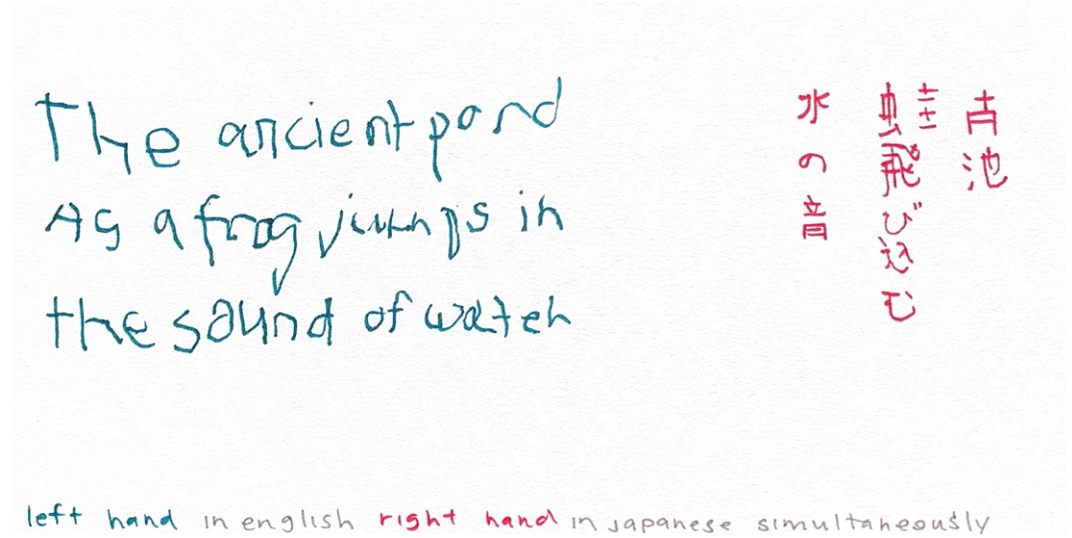 The ancient pond
As a frog jumps in
the sound of water
古池
蛙飛び込む
水の音
left hand in english right hand in japanese simultaneously